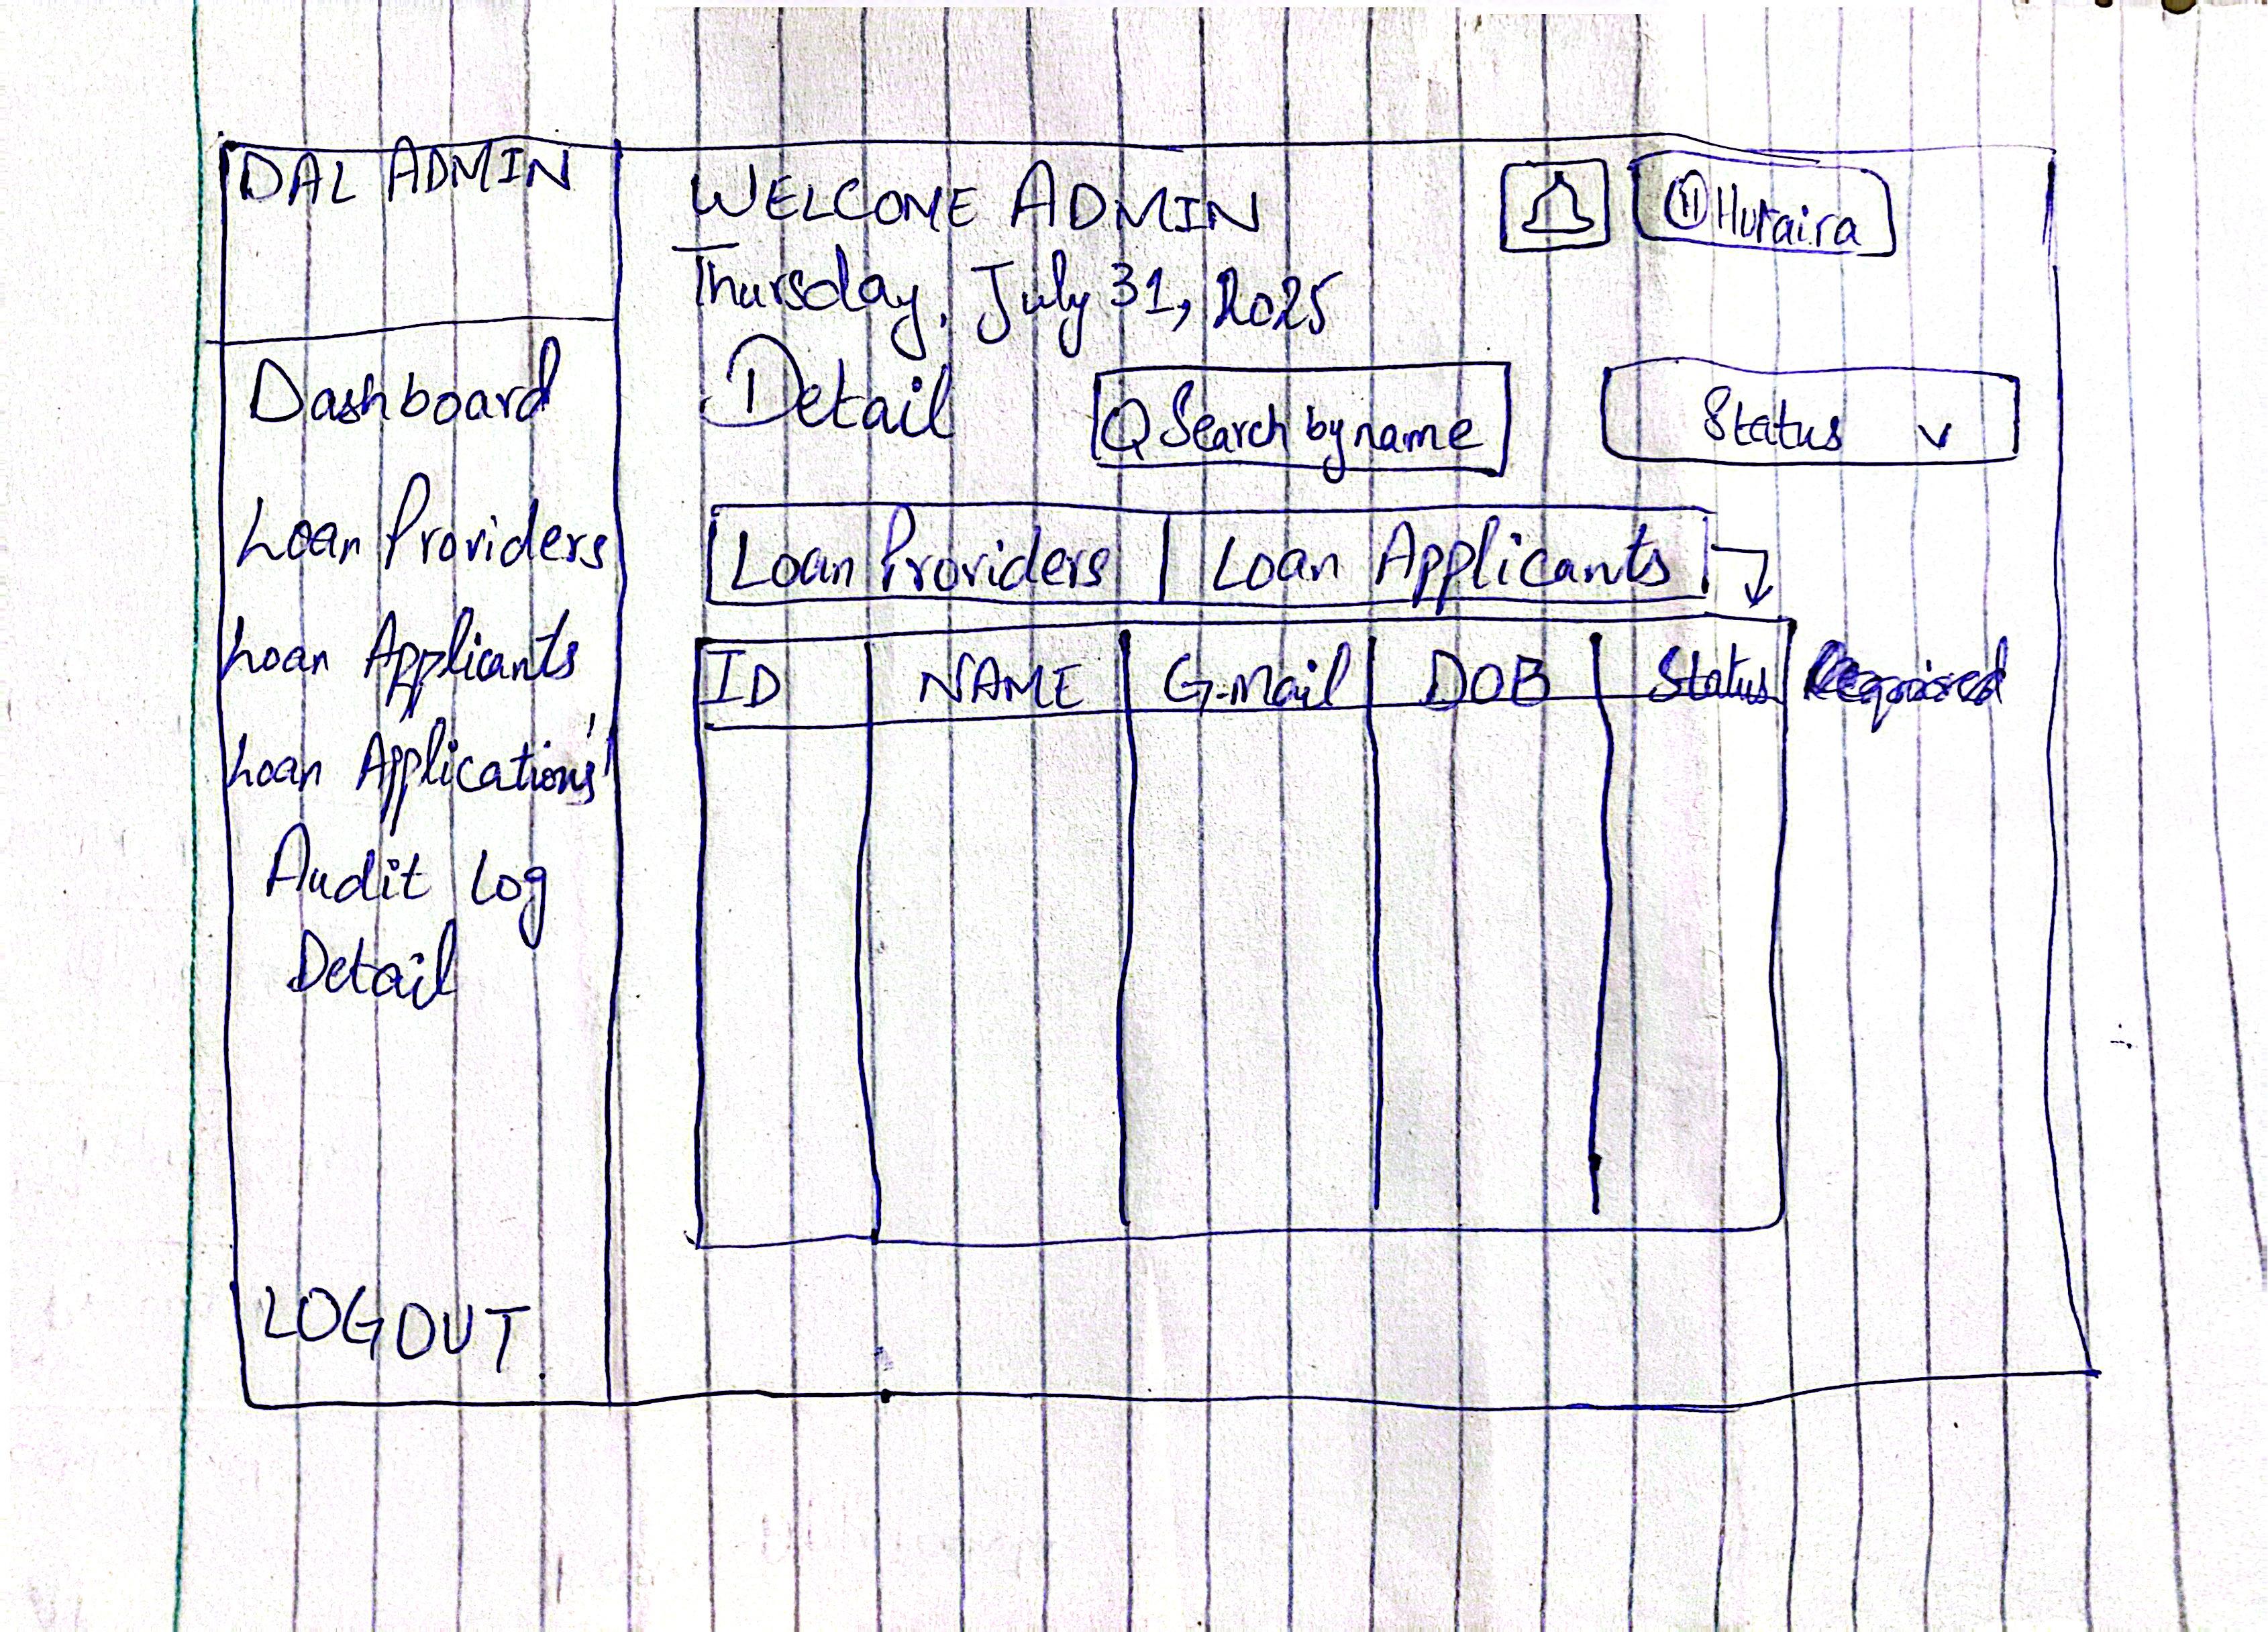 DAL ADMIN
Dashboard
Loan Providers
Loan Applicants
Loan Applications
Audit Log
Detail
LOGOUT
WELCOME ADMIN
Thursday, July 31, 2025
H Huraira
Detail
Search by name
Status
Loan Providers | Loan Applicants
ID NAME G-mail DOB Status Required